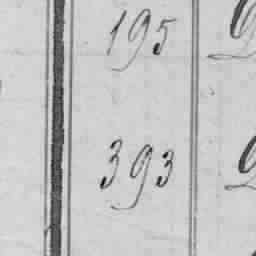 195
393